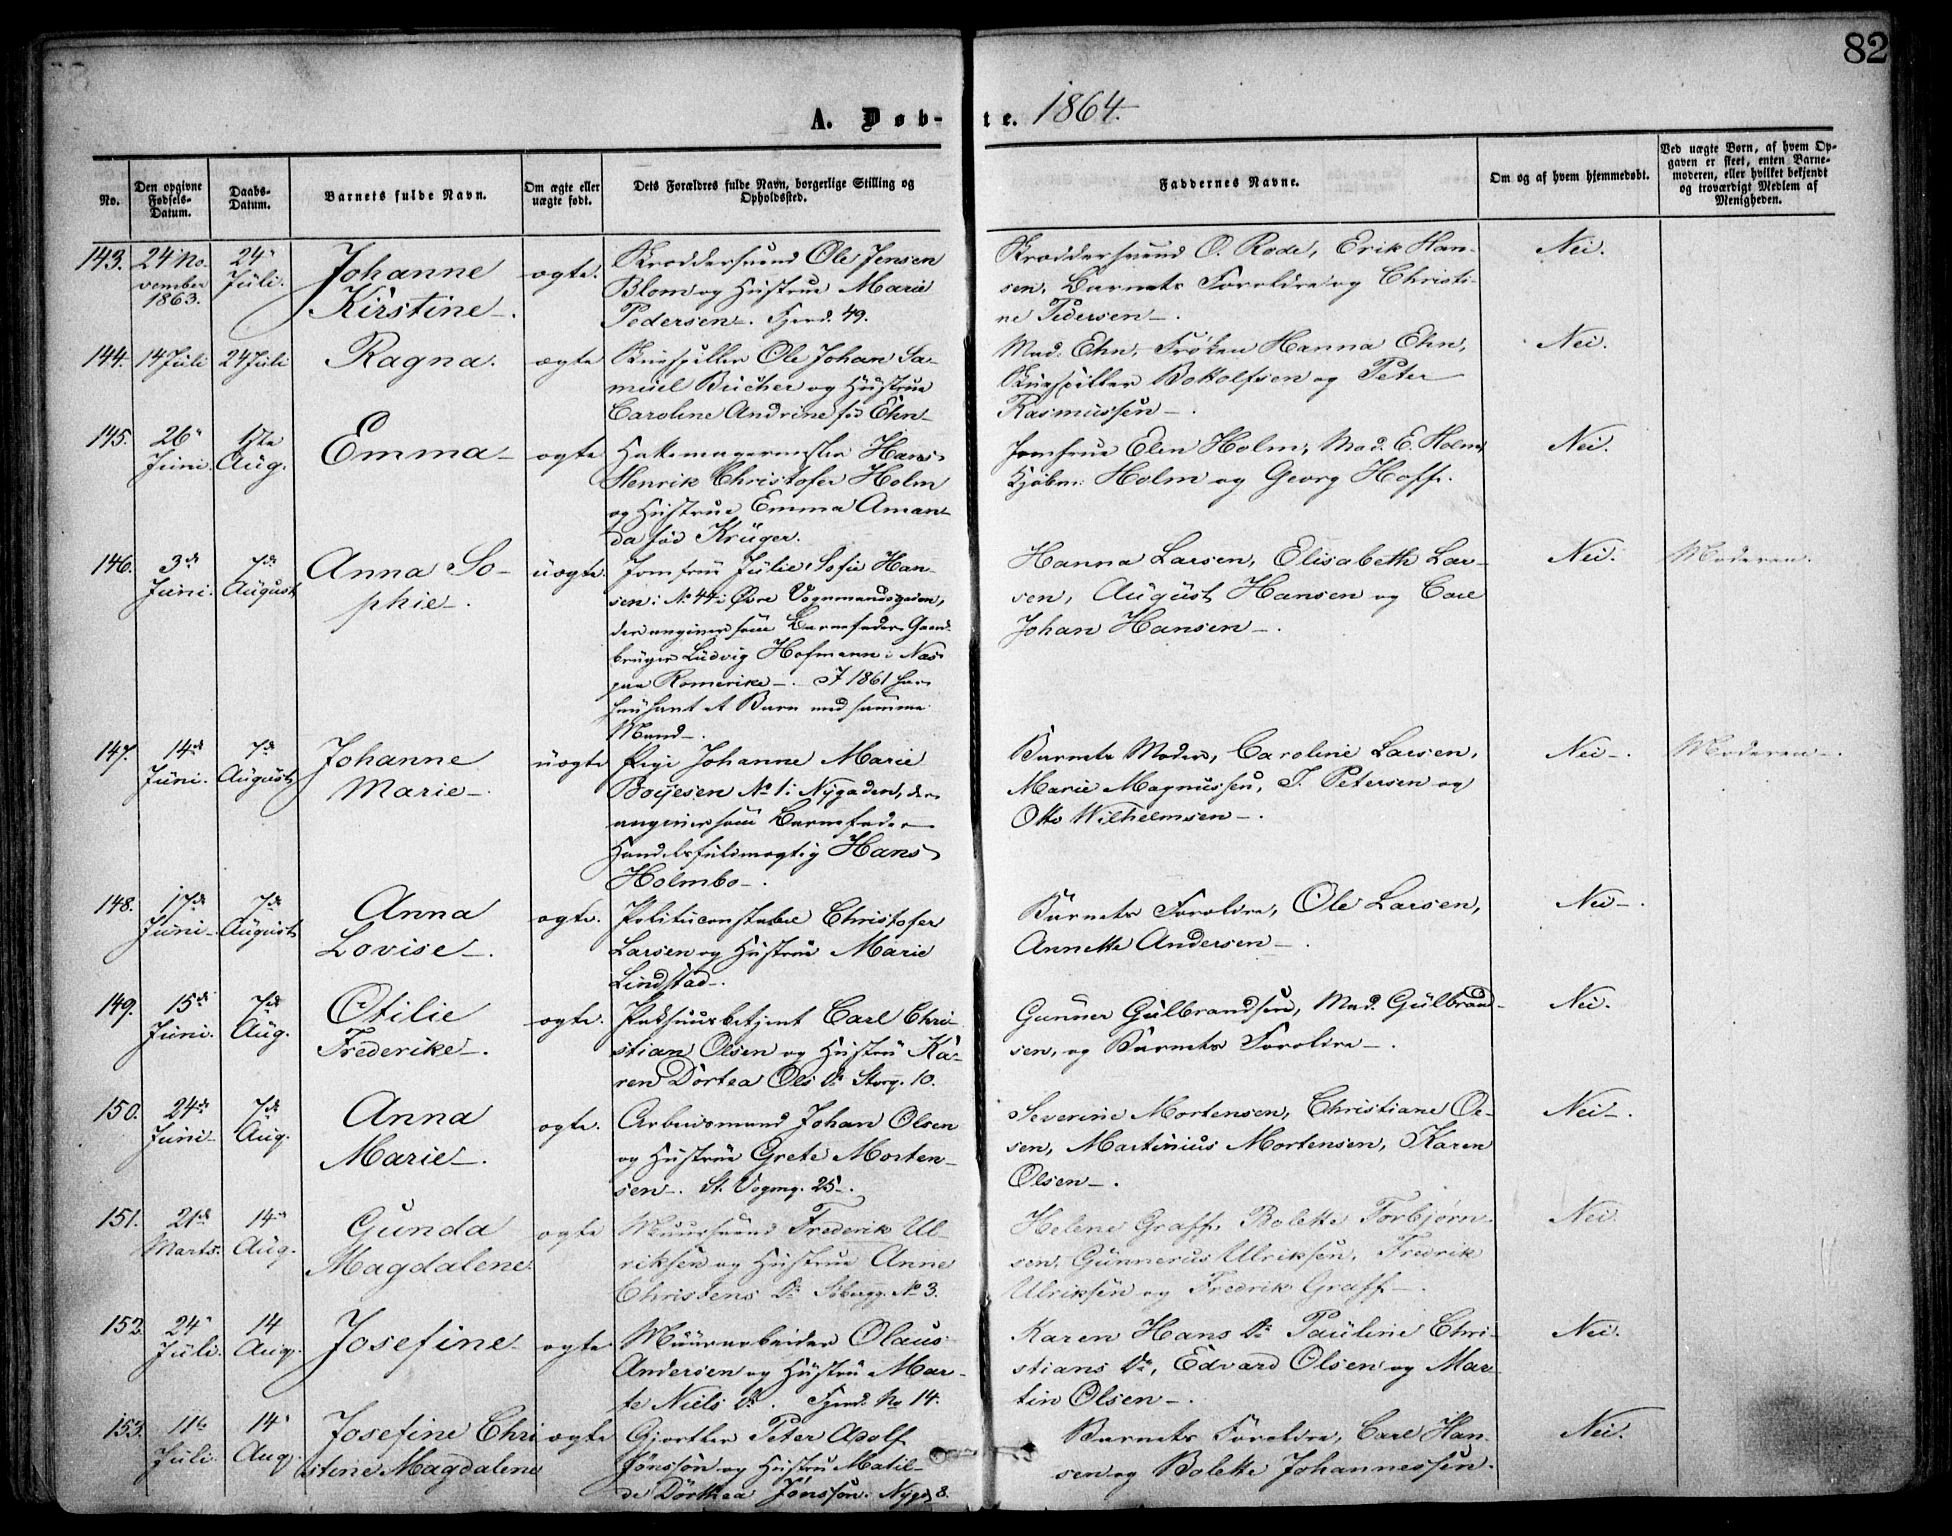 82
A. Døb- te. 1864.
No.
Den opgivne Fødsels-Datum.
Daabs-Datum.
Barnets fulde Navn.
Om ægte eller uægte født.
Dets Forældres fulde Navn, borgerlige Stilling og Opholdssted.
Faddernes Navne.
Om og af hvem hjemmedøbt.
Ved uægte Børn, af hvem Opgaven er skeet, enten Barnemoderen, eller hvilket bekjendt og troværdigt Medlem af Menigheden.
143.
24 November 1863.
24 Juli.
Johanne
Kirstine.
ægte.
Skræddersvend Ole Jensen
Blom og Hustrue Marie
Pedersen. Fjerd. 49.
Skræddersvend O. Rode, Erik Han-
sen, Barnets Forældre og Christi-
ne Pedersen.
Nei.
144.
14 Juli
24 Juli
Ragna.
ægte
Skuespiller Ole Johan Sa-
muel Bucher og Hustrue
Caroline Andrine fød Ehn
Mad. Ehn, Frøken Hanna Ehn,
Skuespiller Botolfsen og Peter
Rasmussen.
Nei.
145.
26 Juni.
Aug.
Emma
ægte
Hans
Henrik Christofer Holm
og Hustrue Emma Aman-
da fød Krüger.
Jomfrue Elen Holm, Mad. E. Holm
Kjøbm. Holm og Georg Hoff.
Nei.
146.
3de Juni.
7de August
Anna So-
phie.
uægte.
Jomfru Julie Sofie Han-
sen i No 44 i Øvre Vognmandsgaden,
der angiver som Barnefader Gaard-
bruger Ludvig Hofmann i Næs
paa Romerike. I 1861 har
hun havt et Barn med samme
Mand.
Hanna Larsen, Elisabeth Lar-
sen, August Hansen og Carl
Johan Hansen.
Nei.
Moderen.
147.
14de Juni.
7de August
Johanne
Marie
uægte
Pige Johanne Marie
Boyesen No 1 i Nygaden, der
angiver som Barnefader
Handelsfuldmægtig Hans
Holmbo.
Barnets Moder, Caroline Larsen,
Marie Magnussen, J. Petersen og
Otto Wilhelmsen.
Nei.
Moderen.
148.
17de Juni
7de August
Anna
Lovise.
ægte.
Politiconstabel Christofer
Larsen og Hustrue Marie
Lindstad.
Barnets Forældre, Ole Larsen,
Annette Andersen.
Nei.
149.
15de Juni.
7de Aug.
Otilie
Frederike.
ægte.
Pakhuusbetjent Carl Chri-
stian Olsen og Hustru Ka-
ren Dortea Ols Dr Storg. 10.
Gunner Gulbrandsen, Mad. Gulbrand-
sen, og Barnets Forældre.
Nei.
150.
24de Juni
7de Aug.
Anna
Marie.
ægte.
Arbeidsmand Johan Olsen
og Hustrue Grete Morten-
sen. St. Vogmg. 25.
Severine Mortensen, Christiane Ol-
sen, Martinius Mortensen, Karen
Olsen.
Nei.
151.
21de Marts.
14 Aug.
Gunda
Magdalene
ægte
Muursvend Frederik Ul-
riksen og Hustrue Anne
Christens Dr No 3.
Helene Graff, Bolette Torbjørn-
sen, Gunnerus Ulriksen, Fredrik
Ulriksen og Fredrik Graff.
Nei.
152.
24 Juli.
14 Aug.
Josefine
ægte
Muurarbeider Olaus
Andersen og Hustru Mar-
te Niels Dr. Fjerd. No 14.
Karen Hans Dr Pauline Chri-
stians Dr, Edvard Olsen og Mar-
tin Olsen.
Nei.
153.
11te Juli
14 Aug.
Josefine Chri
stine Magdalene
ægte
Gjørtler Peter Adolf
Jönsson og Hustru Matil-
de Dorthea Jönsson. Nyg. 8.
Barnets Forældre, Carl Han-
sen og Bolette Johannessen.
Nei.